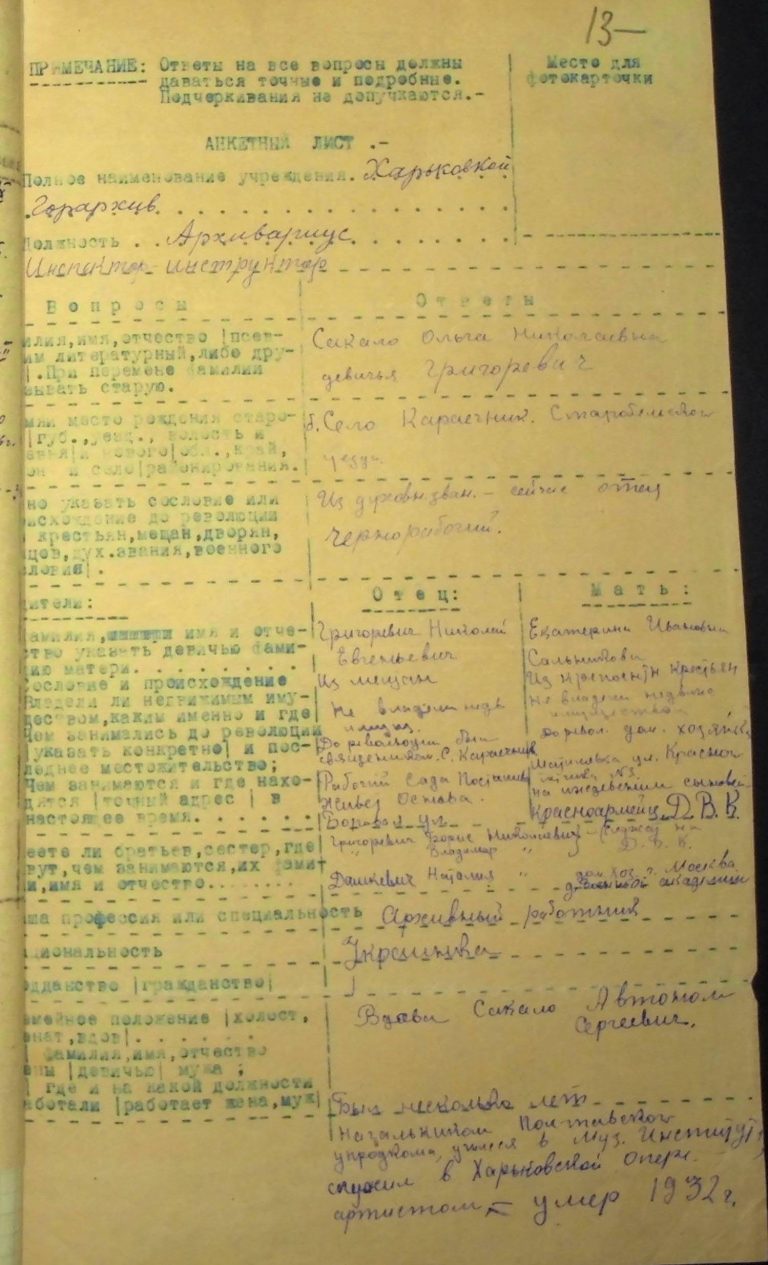 13-
ПРИМЕЧАНИЕ: Ответы на все вопросы должны
даваться точные и подробные.
Подчеркивания не допускаются.-
Место для
фотокарточки
АНКЕТНЫЙ ЛИСТ .-
Полное наименование учреждения. Харьковской
Горархив
Должность . . Архивариус
Инспектор инструктор
Вопросы
Ответы
илия,имя,отчество |псев-
им литературный,либо дру-
|.При перемене фамилии
зывать старую.
Сакало Ольга Николаевна
девичья Григоревич
мя и место рождения старо-
|губ.,уезд., волость и
он и село|районирования.
б. Село Караечник. Старобельского
уезда
но указать сословие или
исхождение до революции
крестьян,мещан,дворян,
цов,дух.звания,военного
словия|.
Из духовн.зван. - сейчас отец
чернорабочий.
ители:
Отец:
Мать:
амилия, имя и отче-
ство указать девичью фами-
лию матери. . . . . . . .
Сословие и происхождение
Владели ли недвижимым иму-
ществом,каким именно и где
Чем занимались до революции
|указать конкретно| и пос-
леднее местожительство;
Чем занимаются и где нахо-
дятся |точный адрес | в
настоящее время. . . . . .
Григоревич Николай
Евгеньевич
Из мещан
Не владели недв
До революции был
священником. С. Караечник
Рабочий Сада
Живет Основа.
Екатерина Ивановна
Сальникова
Из крестьян
Не владела недвижи
имуществом
до револ. дом. хозяйка
ул. Красной
№3.
на иждевении сыновей
Красноармейц. Д.В.К.
еете ли братьев,сестер,где
вут,чем занимаются,их фами-
и,имя и отчество. . . . . . .
Григоревич Борис Николаевич
Владимир "
Д.В.К.
Дашкевич Наталия " дом.хоз. г. Москва
академии
ша профессия или специальность Архивный работник
циональность
Украинка
одданство |гражданство|
мейное положение |холост,
енат,вдов|. . . . . .
фамилия,имя,отчество
ены |девичью| мужа ;
где и на какой должности
аботали |работает жена,муж|
Вдова Сакало Автоном
Сергеевич.
Был несколько лет
Начальником Полтавского
упродкома, учился в Муз. Институте,
служил в Харьковской Опере
артистом - умер 1932 г.